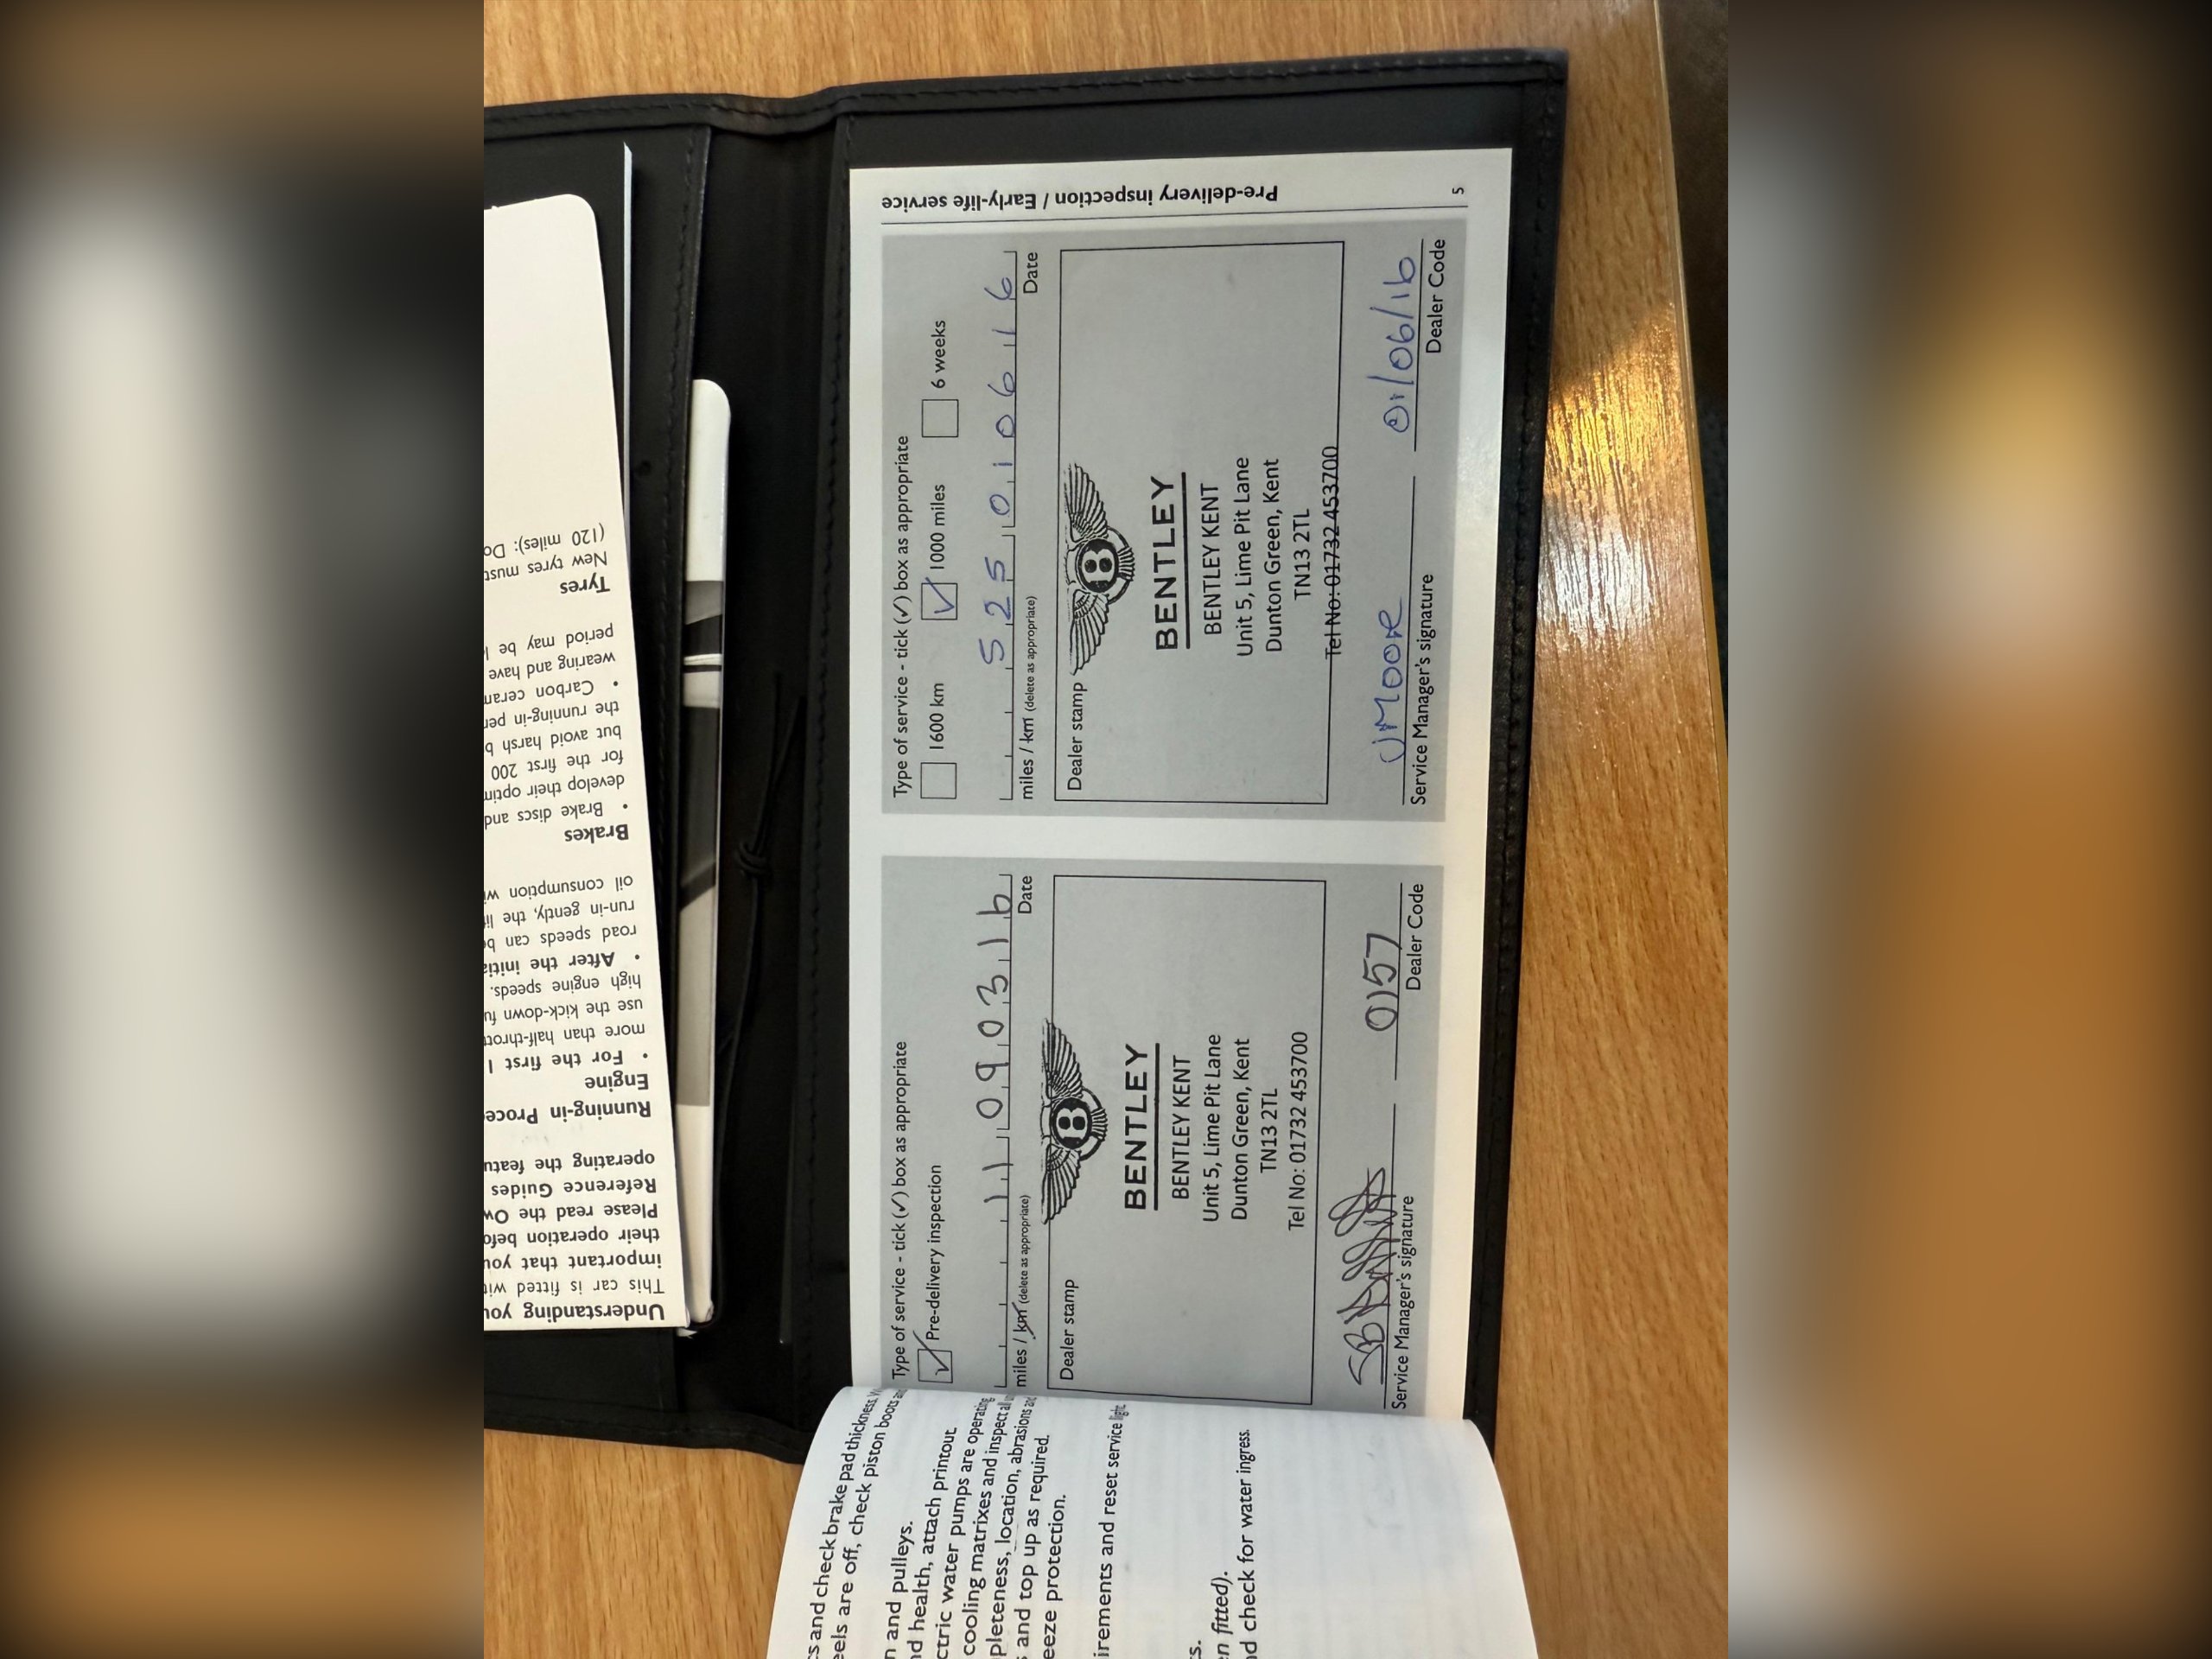 Pre-delivery inspection / Early-life service
Type of service - tick (✓) box as appropriate
✓ Pre-delivery inspection
11 090316
miles / km (delete as appropriate) Date
Dealer stamp
B
BENTLEY
BENTLEY KENT
Unit 5, Lime Pit Lane
Dunton Green, Kent
TN13 2TL
Tel No: 01732 453700
0157
Service Manager's signature Dealer Code
Type of service - tick (✓) box as appropriate
1600 km ✓ 1000 miles 6 weeks
525 010616
miles / km (delete as appropriate) Date
Dealer stamp
B
BENTLEY
BENTLEY KENT
Unit 5, Lime Pit Lane
Dunton Green, Kent
TN13 2TL
Tel No: 01732 453700
JMOORE 01/06/16
Service Manager's signature Dealer Code
5
and check brake pad thickness.
are off, check piston boots
and pulleys.
health, attach printout
water pumps are operating
cooling matrixes and inspect all
location, abrasions and
and top up as required.
protection.
and reset service light.
fitted).
check for water ingress.
Understanding
This car is fitted
important that
their operation
Please read the
Reference Guides
operating the
Running-in
Engine
• For the first
more than
use the kick-down
high engine speeds.
• After the
road speeds can
run-in gently, the
oil consumption
Brakes
• Brake discs and
develop their
for the first 200
but avoid harsh
the running-in
• Carbon
wearing and have
period may be
Tyres
New tyres must
(120 miles):